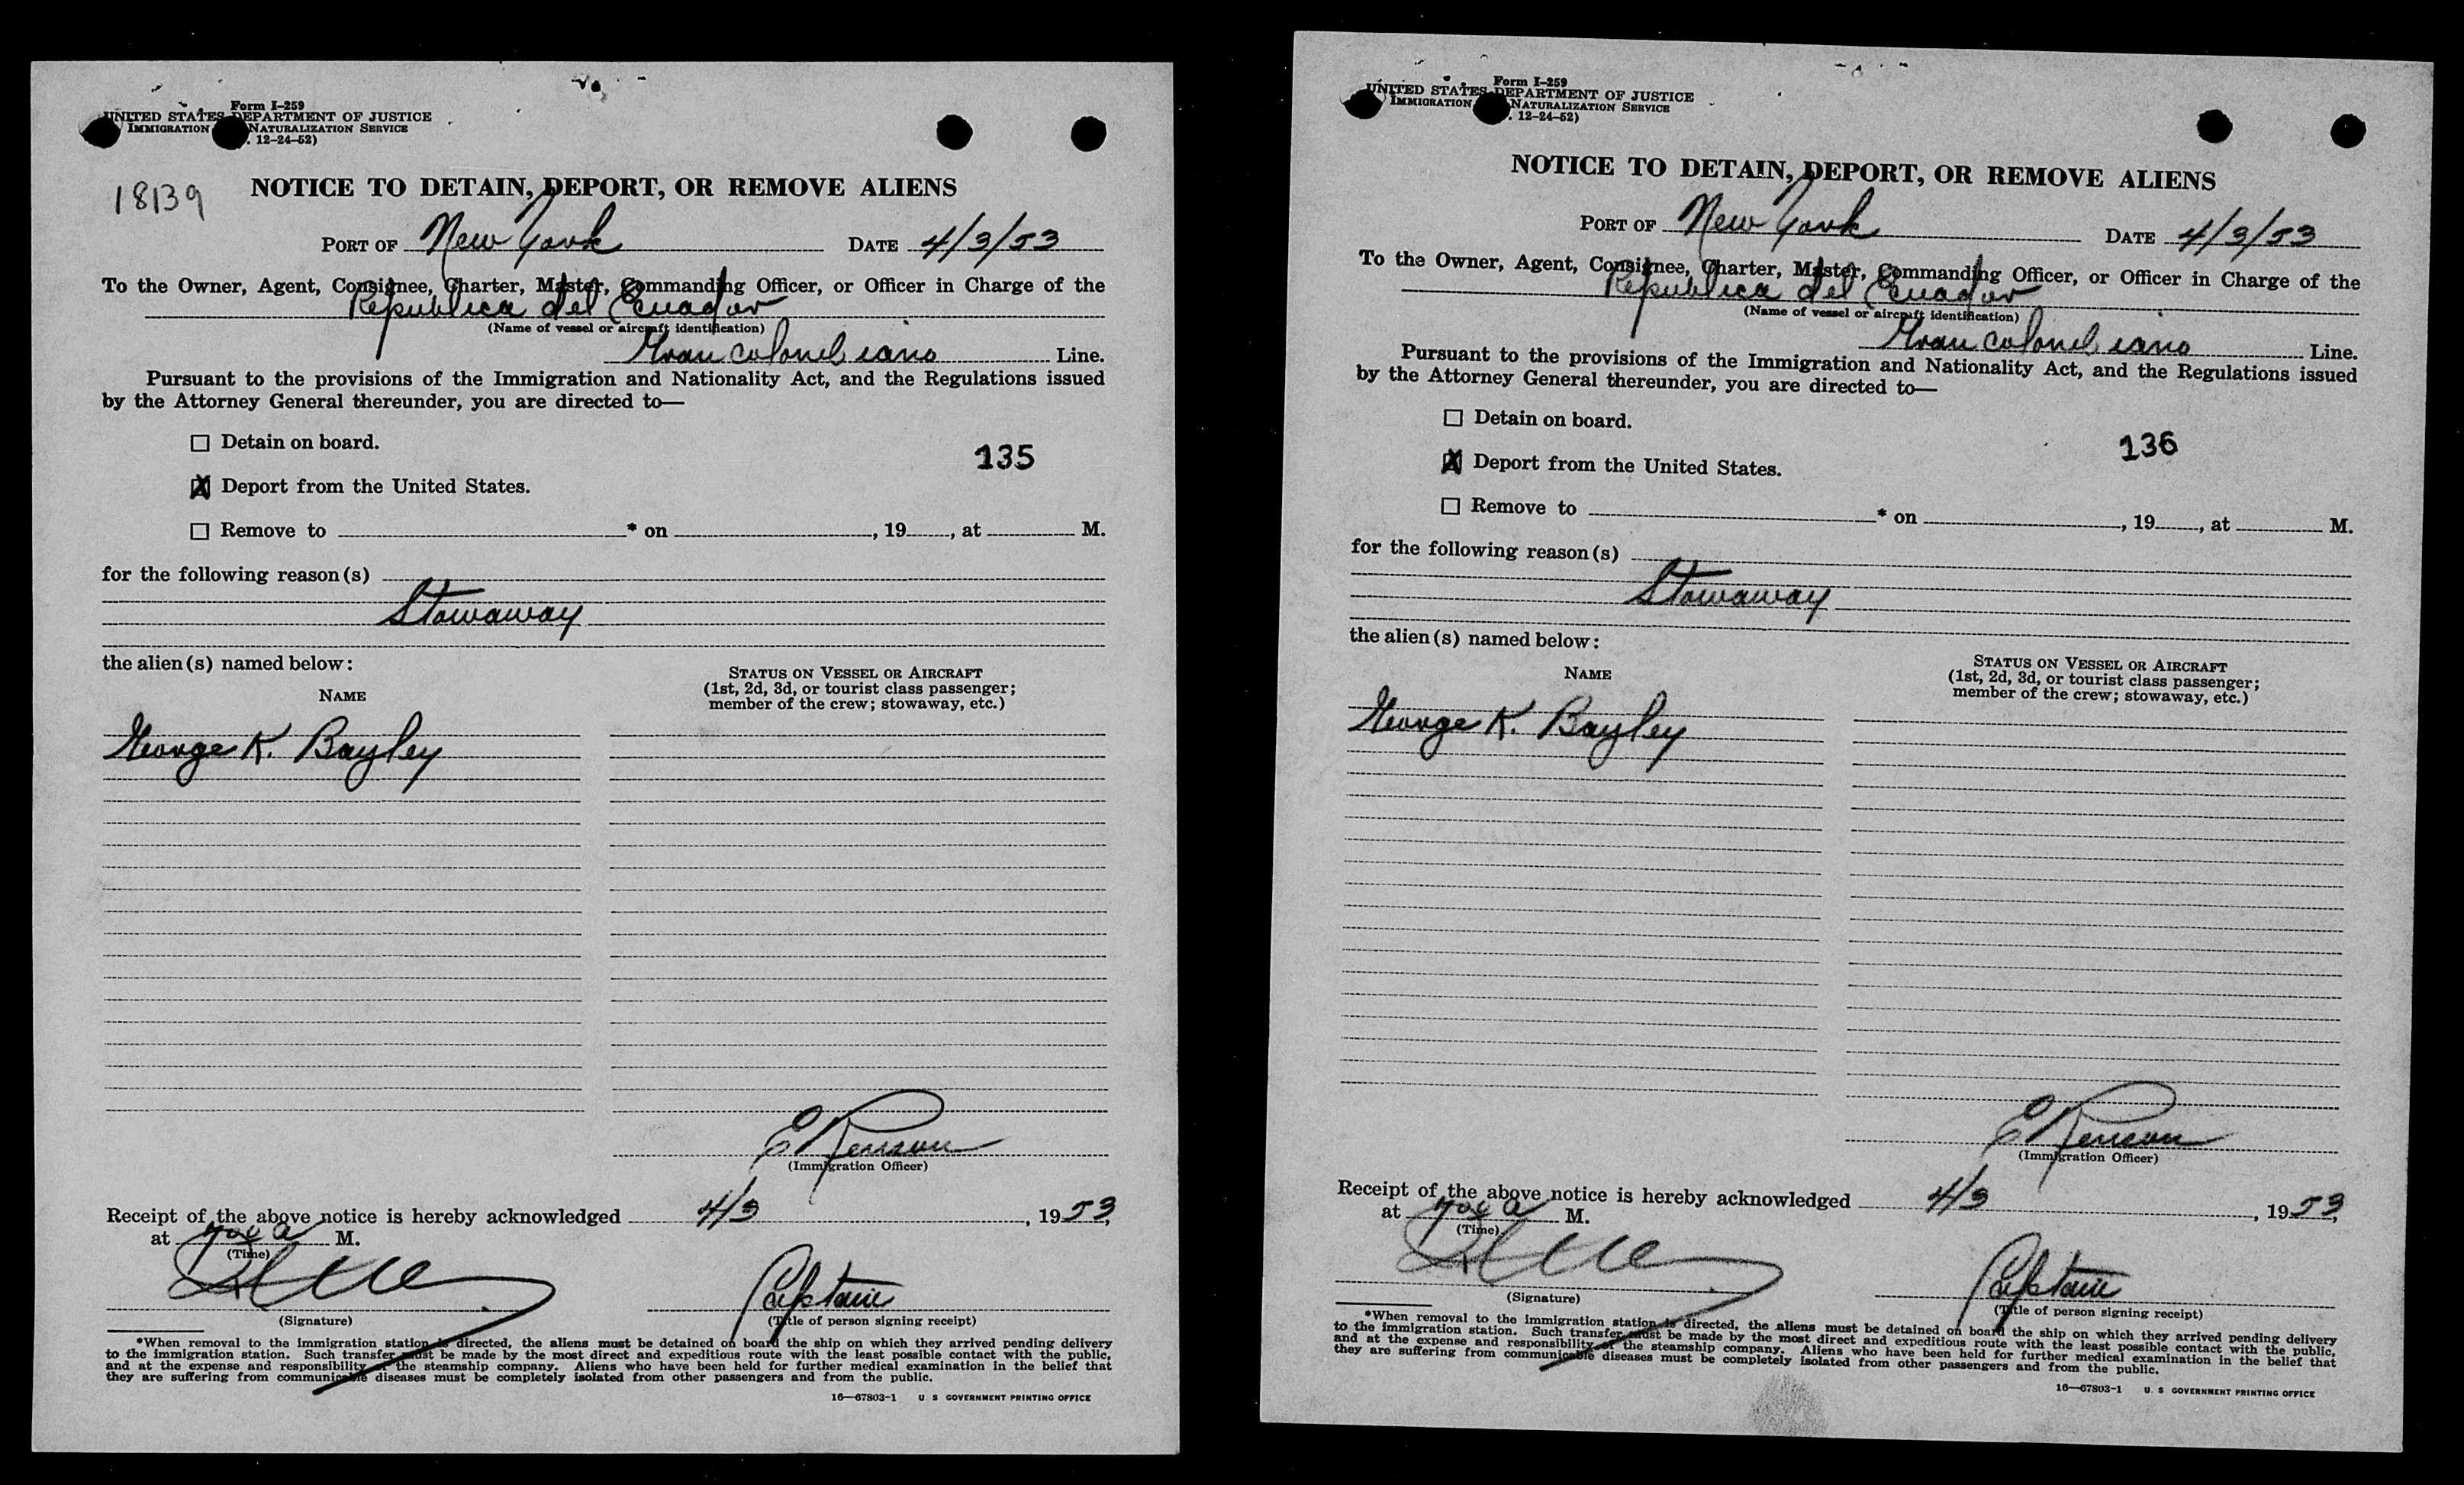 Form I-259
UNITED STATES DEPARTMENT OF JUSTICE
IMMIGRATION NATURALIZATION SERVICE
. 12-24-52)
18139
NOTICE TO DETAIN, DEPORT, OR REMOVE ALIENS
PORT OF New York DATE 4/3/53
To the Owner, Agent, Consignee, Charter, Master, Commanding Officer, or Officer in Charge of the
Republica del Ecuador
(Name of vessel or aircraft identification)
Gran colombiano Line.
Pursuant to the provisions of the Immigration and Nationality Act, and the Regulations issued
by the Attorney General thereunder, you are directed to—
☐ Detain on board.
135
☒ Deport from the United States.
☐ Remove to * on , 19 , at M.
for the following reason(s)
Stowaway
the alien(s) named below:
NAME
STATUS ON VESSEL OR AIRCRAFT
(1st, 2d, 3d, or tourist class passenger;
member of the crew; stowaway, etc.)
George K. Bayley
(Immigration Officer)
Receipt of the above notice is hereby acknowledged 4/3, 1953,
at A M.
(Time)
Captain
(Signature)
(Title of person signing receipt)
*When removal to the immigration station is directed, the aliens must be detained on board the ship on which they arrived pending delivery
to the immigration station. Such transfer must be made by the most direct and expeditious route with the least possible contact with the public,
and at the expense and responsibility of the steamship company. Aliens who have been held for further medical examination in the belief that
they are suffering from communicable diseases must be completely isolated from other passengers and from the public.
16—67803-1 U. S GOVERNMENT PRINTING OFFICE
Form I-259
UNITED STATES DEPARTMENT OF JUSTICE
IMMIGRATION NATURALIZATION SERVICE
. 12-24-52)
NOTICE TO DETAIN, DEPORT, OR REMOVE ALIENS
PORT OF New York DATE 4/3/53
To the Owner, Agent, Consignee, Charter, Master, Commanding Officer, or Officer in Charge of the
Republica del Ecuador
(Name of vessel or aircraft identification)
Gran colombiano Line.
Pursuant to the provisions of the Immigration and Nationality Act, and the Regulations issued
by the Attorney General thereunder, you are directed to—
☐ Detain on board.
136
☒ Deport from the United States.
☐ Remove to * on , 19 , at M.
for the following reason(s)
Stowaway
the alien(s) named below:
NAME
STATUS ON VESSEL OR AIRCRAFT
(1st, 2d, 3d, or tourist class passenger;
member of the crew; stowaway, etc.)
George K. Bayley
(Immigration Officer)
Receipt of the above notice is hereby acknowledged 4/3, 1953,
at A M.
(Time)
Captain
(Signature)
(Title of person signing receipt)
*When removal to the immigration station is directed, the aliens must be detained on board the ship on which they arrived pending delivery
to the immigration station. Such transfer must be made by the most direct and expeditious route with the least possible contact with the public,
and at the expense and responsibility of the steamship company. Aliens who have been held for further medical examination in the belief that
they are suffering from communicable diseases must be completely isolated from other passengers and from the public.
16—67803-1 U. S GOVERNMENT PRINTING OFFICE